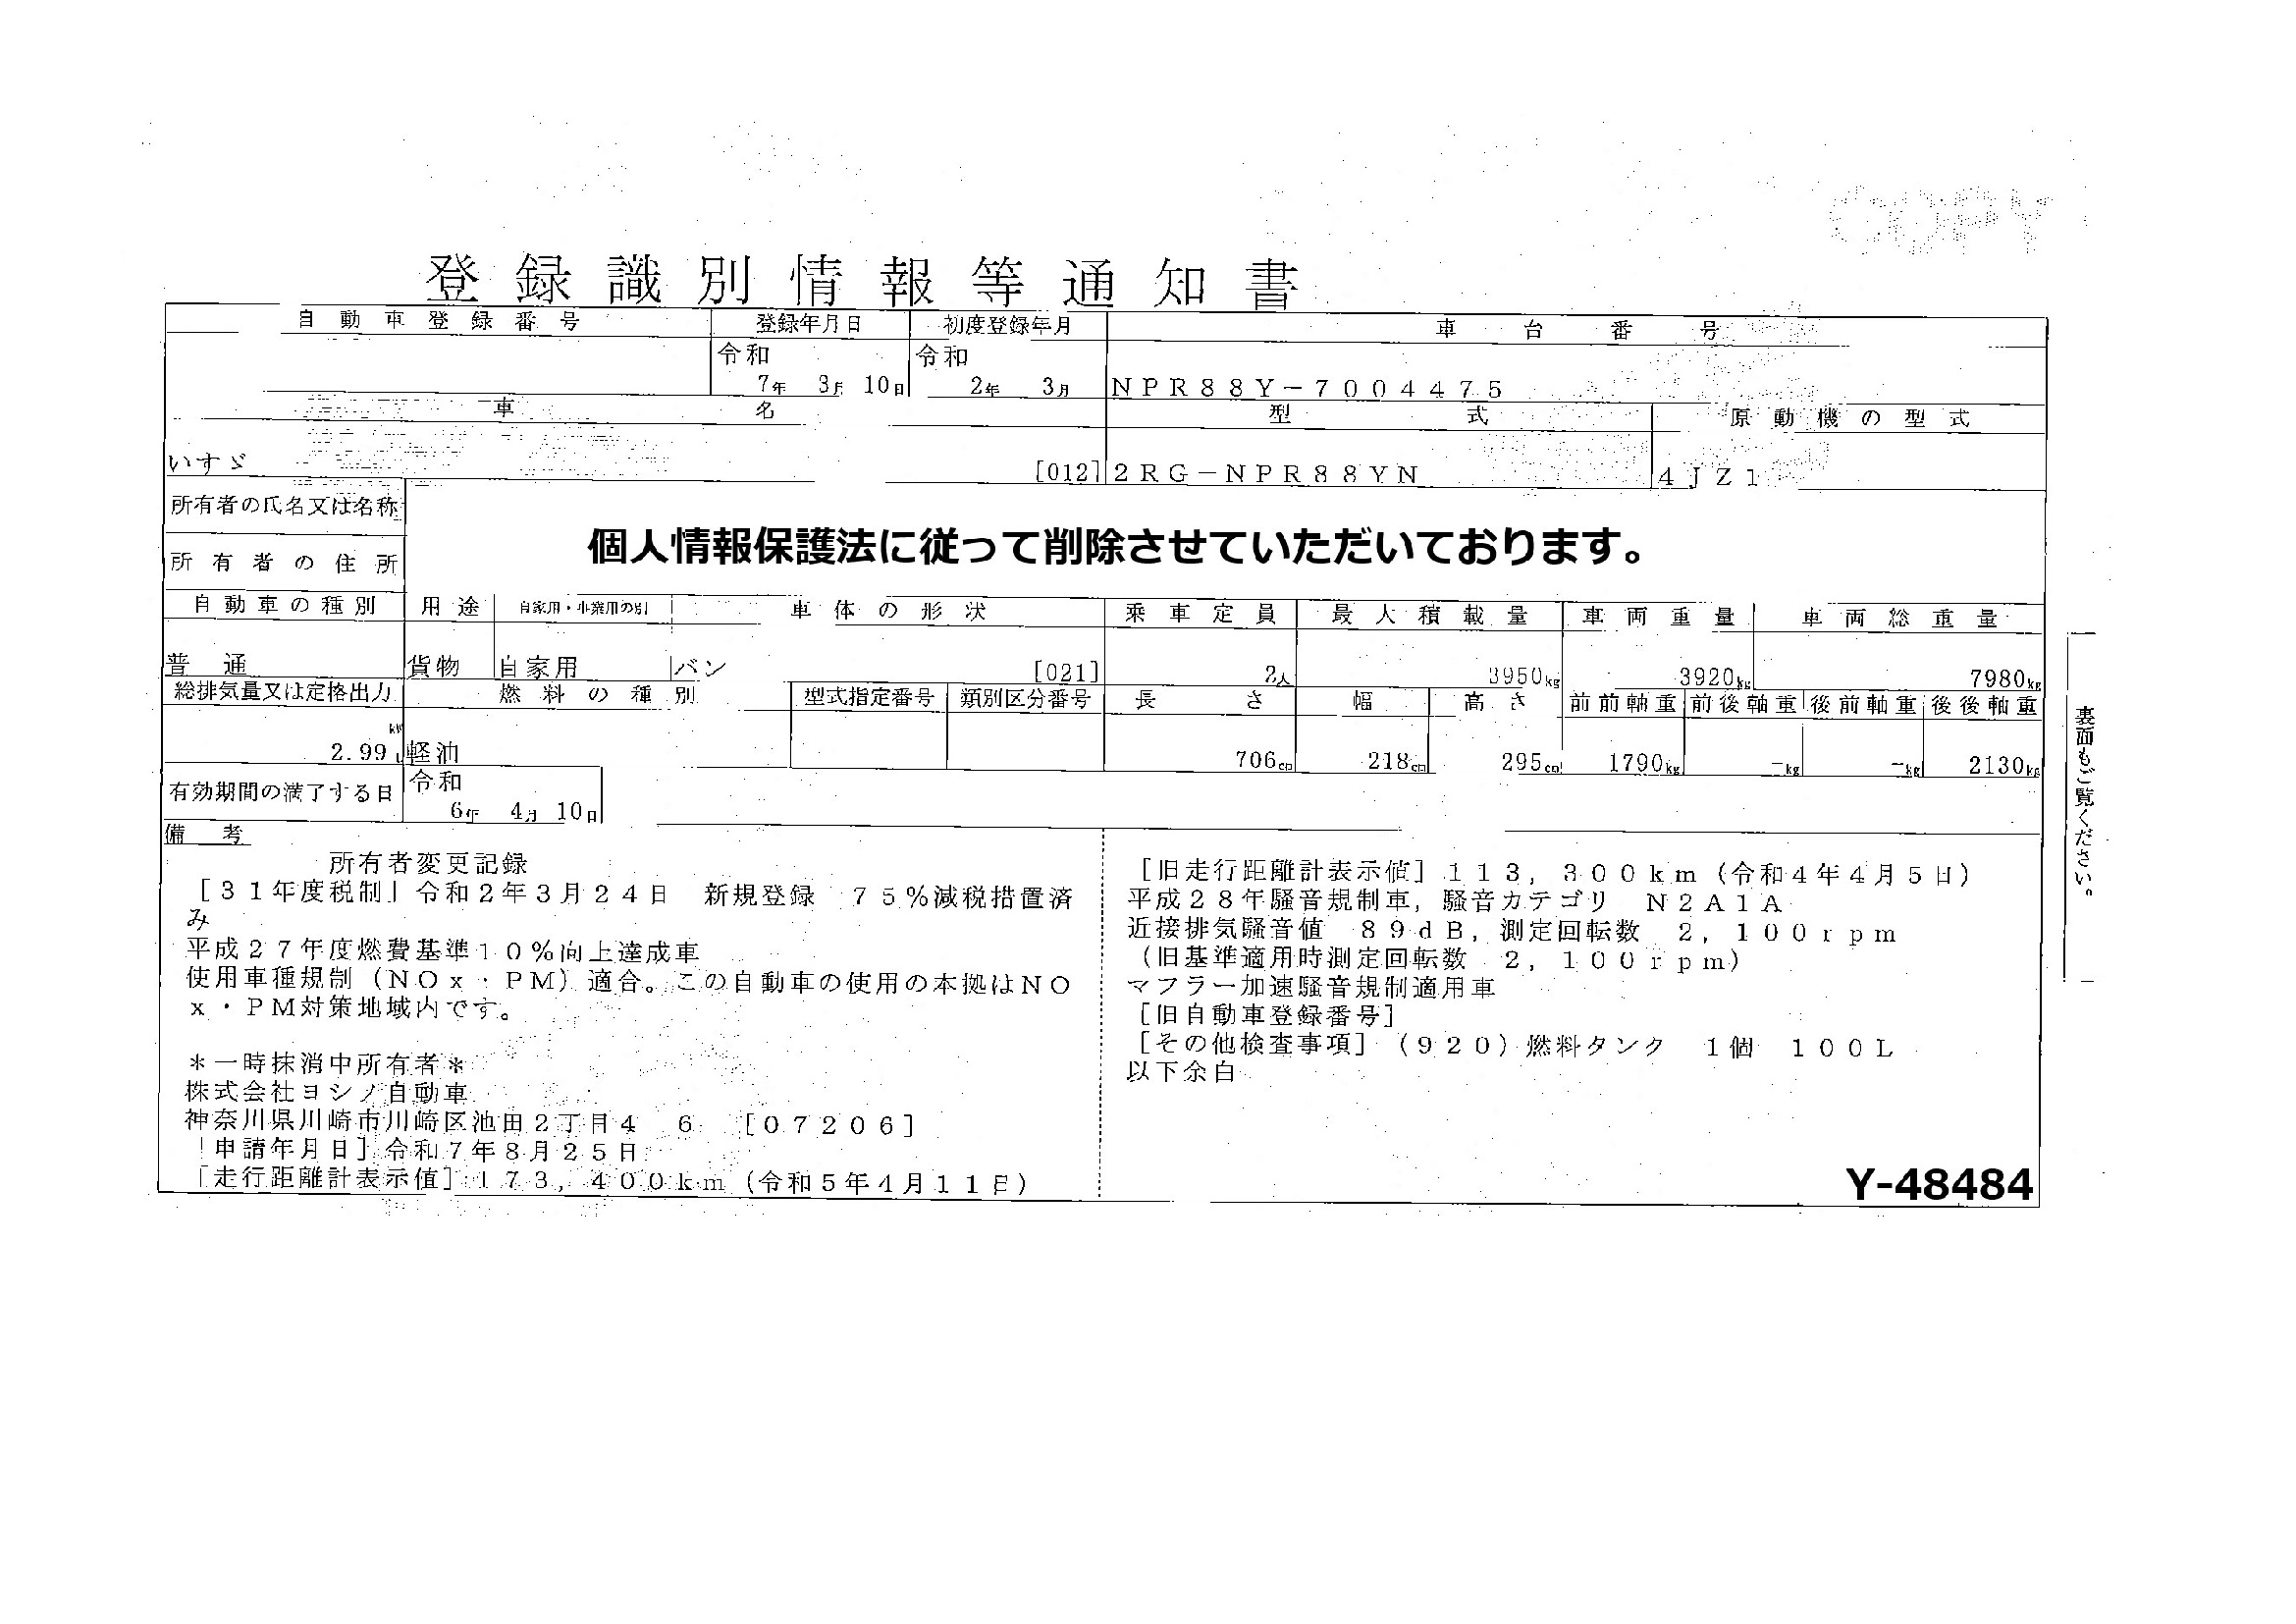 COPY
登録識別情報等通知書
自動車登録番号 登録年月日 初度登録年月 車台番号
令和 令和
7年 3月 10日 2年 3月 NPR88Y-7004475
車名 型式 原動機の型式
いすゞ [012] 2RG-NPR88YN 4JZ1
所有者の氏名又は名称
個人情報保護法に従って削除させていただいております。
所有者の住所
自動車の種別 用途 自家用・事業用の別 車体の形状 乗車定員 最大積載量 車両重量 車両総重量
普通 貨物 自家用 バン [021] 2人 3950kg 3920kg 7980kg
総排気量又は定格出力 燃料の種別 型式指定番号 類別区分番号 長さ 幅 高さ 前前軸重 前後軸重 後前軸重 後後軸重
kW
2.99L 軽油 706cm 218cm 295cm 1790kg -kg -kg 2130kg
有効期間の満了する日 令和
6年 4月 10日
備考
所有者変更記録
[31年度税制]令和2年3月24日 新規登録 75%減税措置済
み
平成27年度燃費基準10%向上達成車
使用車種規制(NOx・PM)適合。この自動車の使用の本拠はNO
x・PM対策地域内です。
*一時抹消中所有者*
株式会社ヨシノ自動車
神奈川県川崎市川崎区池田2丁目4 6 [07206]
[申請年月日]令和7年8月25日
[走行距離計表示値]173,400km(令和5年4月11日)
[旧走行距離計表示値]113,300km(令和4年4月5日)
平成28年騒音規制車,騒音カテゴリ N2A1A
近接排気騒音値 89dB,測定回転数 2,100rpm
(旧基準適用時測定回転数 2,100rpm)
マフラー加速騒音規制適用車
[旧自動車登録番号]
[その他検査事項](920)燃料タンク 1個 100L
以下余白
Y-48484
裏面もご覧ください。